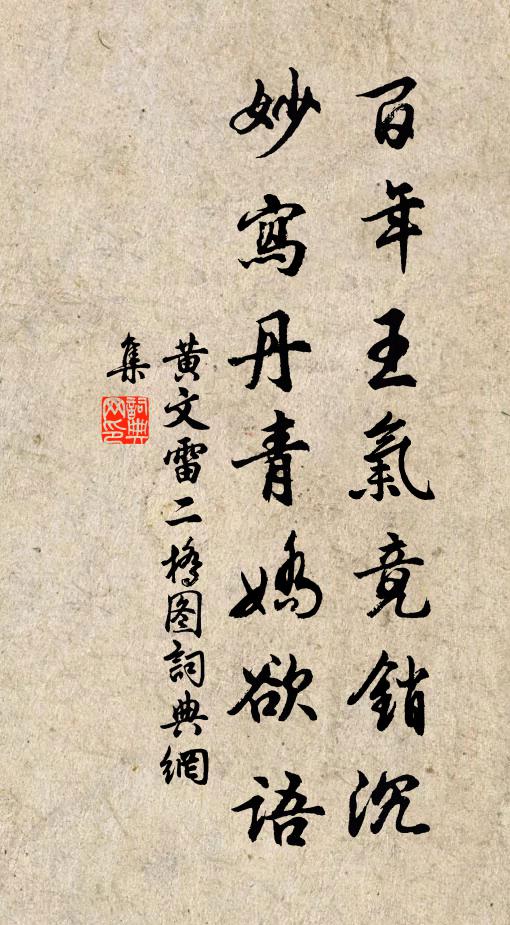 百年王氣竟銷沉
妙寫丹青嬌欲語
黃文雷二橋图詞典網
集
詞典網印